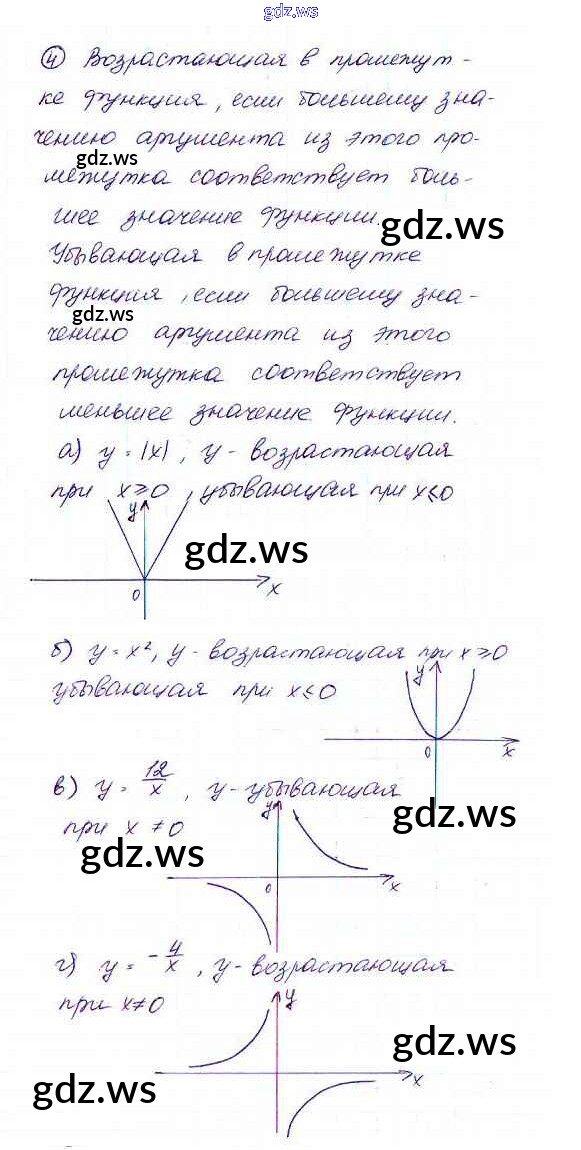 gdz.ws
④ Возрастающая в промежут-
ке функция, если большему зна-
чению аргумента из этого про-
gdz.ws
межутка соответствует боль-
шее значение функции.
gdz.ws
Убывающая в промежутке
функция, если большему зна-
gdz.ws
чению аргумента из этого
промежутка соответствует
меньшее значение функции.
а) y = |x|, y - возрастающая
при x ≥ 0, убывающая при x ≤ 0
y
gdz.ws
0 x
б) y = x², y - возрастающая при x ≥ 0
убывающая при x ≤ 0
y
0 x
в) y = 12/x, y - убывающая
gdz.ws
при x ≠ 0
y
gdz.ws
0 x
г) y = -4/x, y - возрастающая
при x ≠ 0
y
gdz.ws
x
gdz.ws